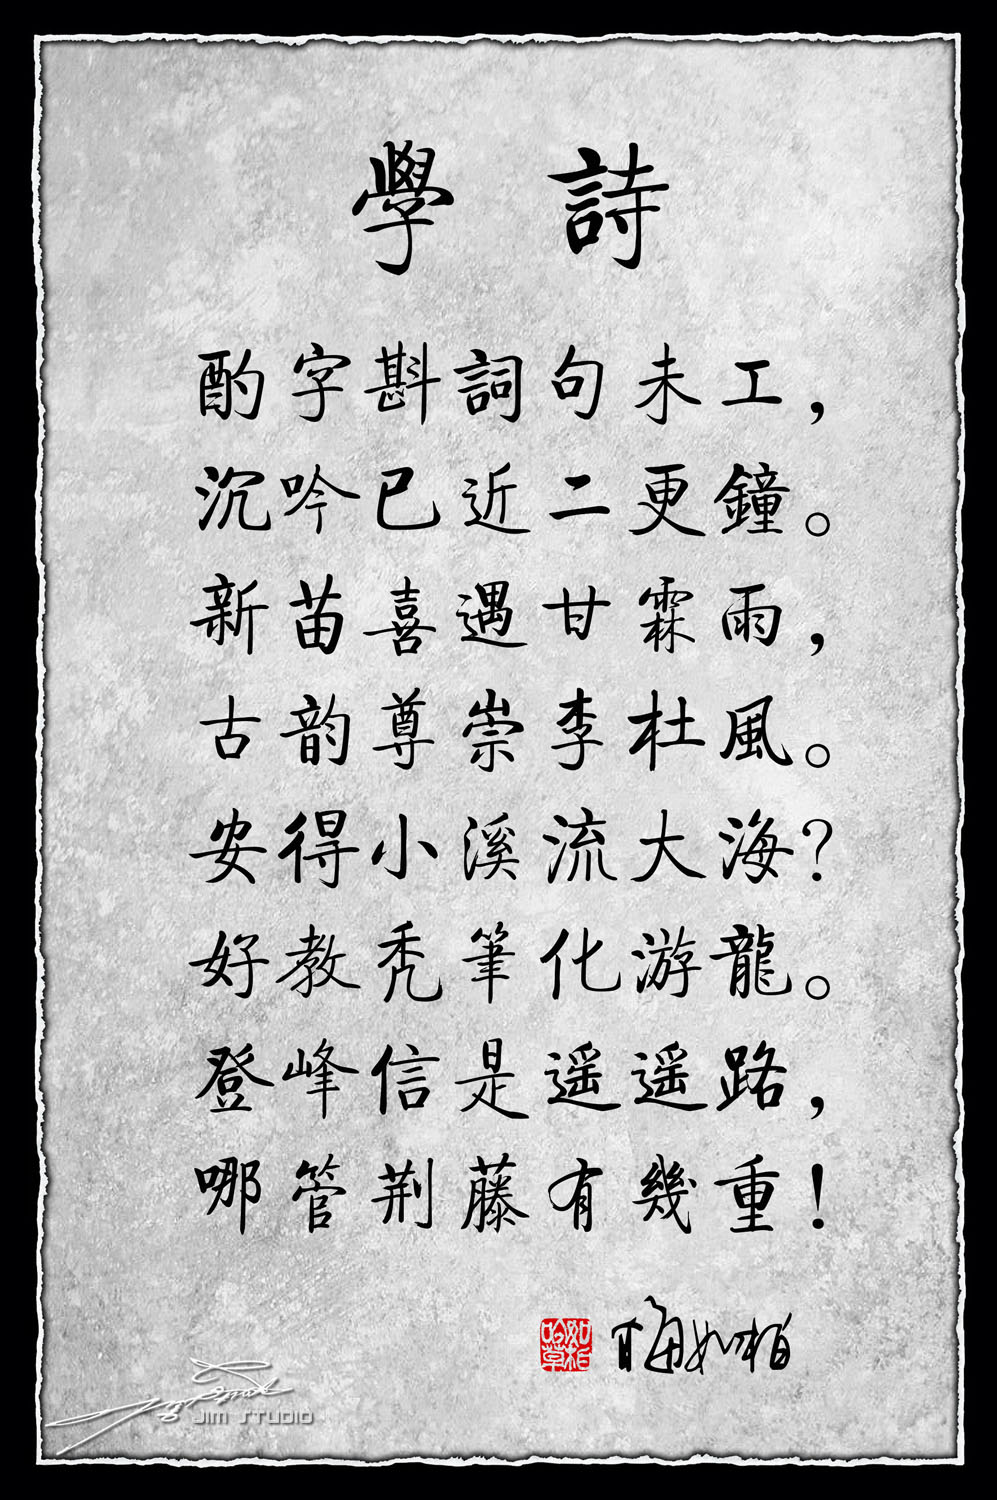 學 詩
酌字斟詞句未工，
沉吟已近二更鐘。
新苗喜遇甘霖雨，
古韵尊崇李杜風。
安得小溪流大海?
好教秃筆化游龍。
登峰信是遥遥路，
哪管荆藤有幾重！
如柏吟草
梅如柏
JIM STUDIO